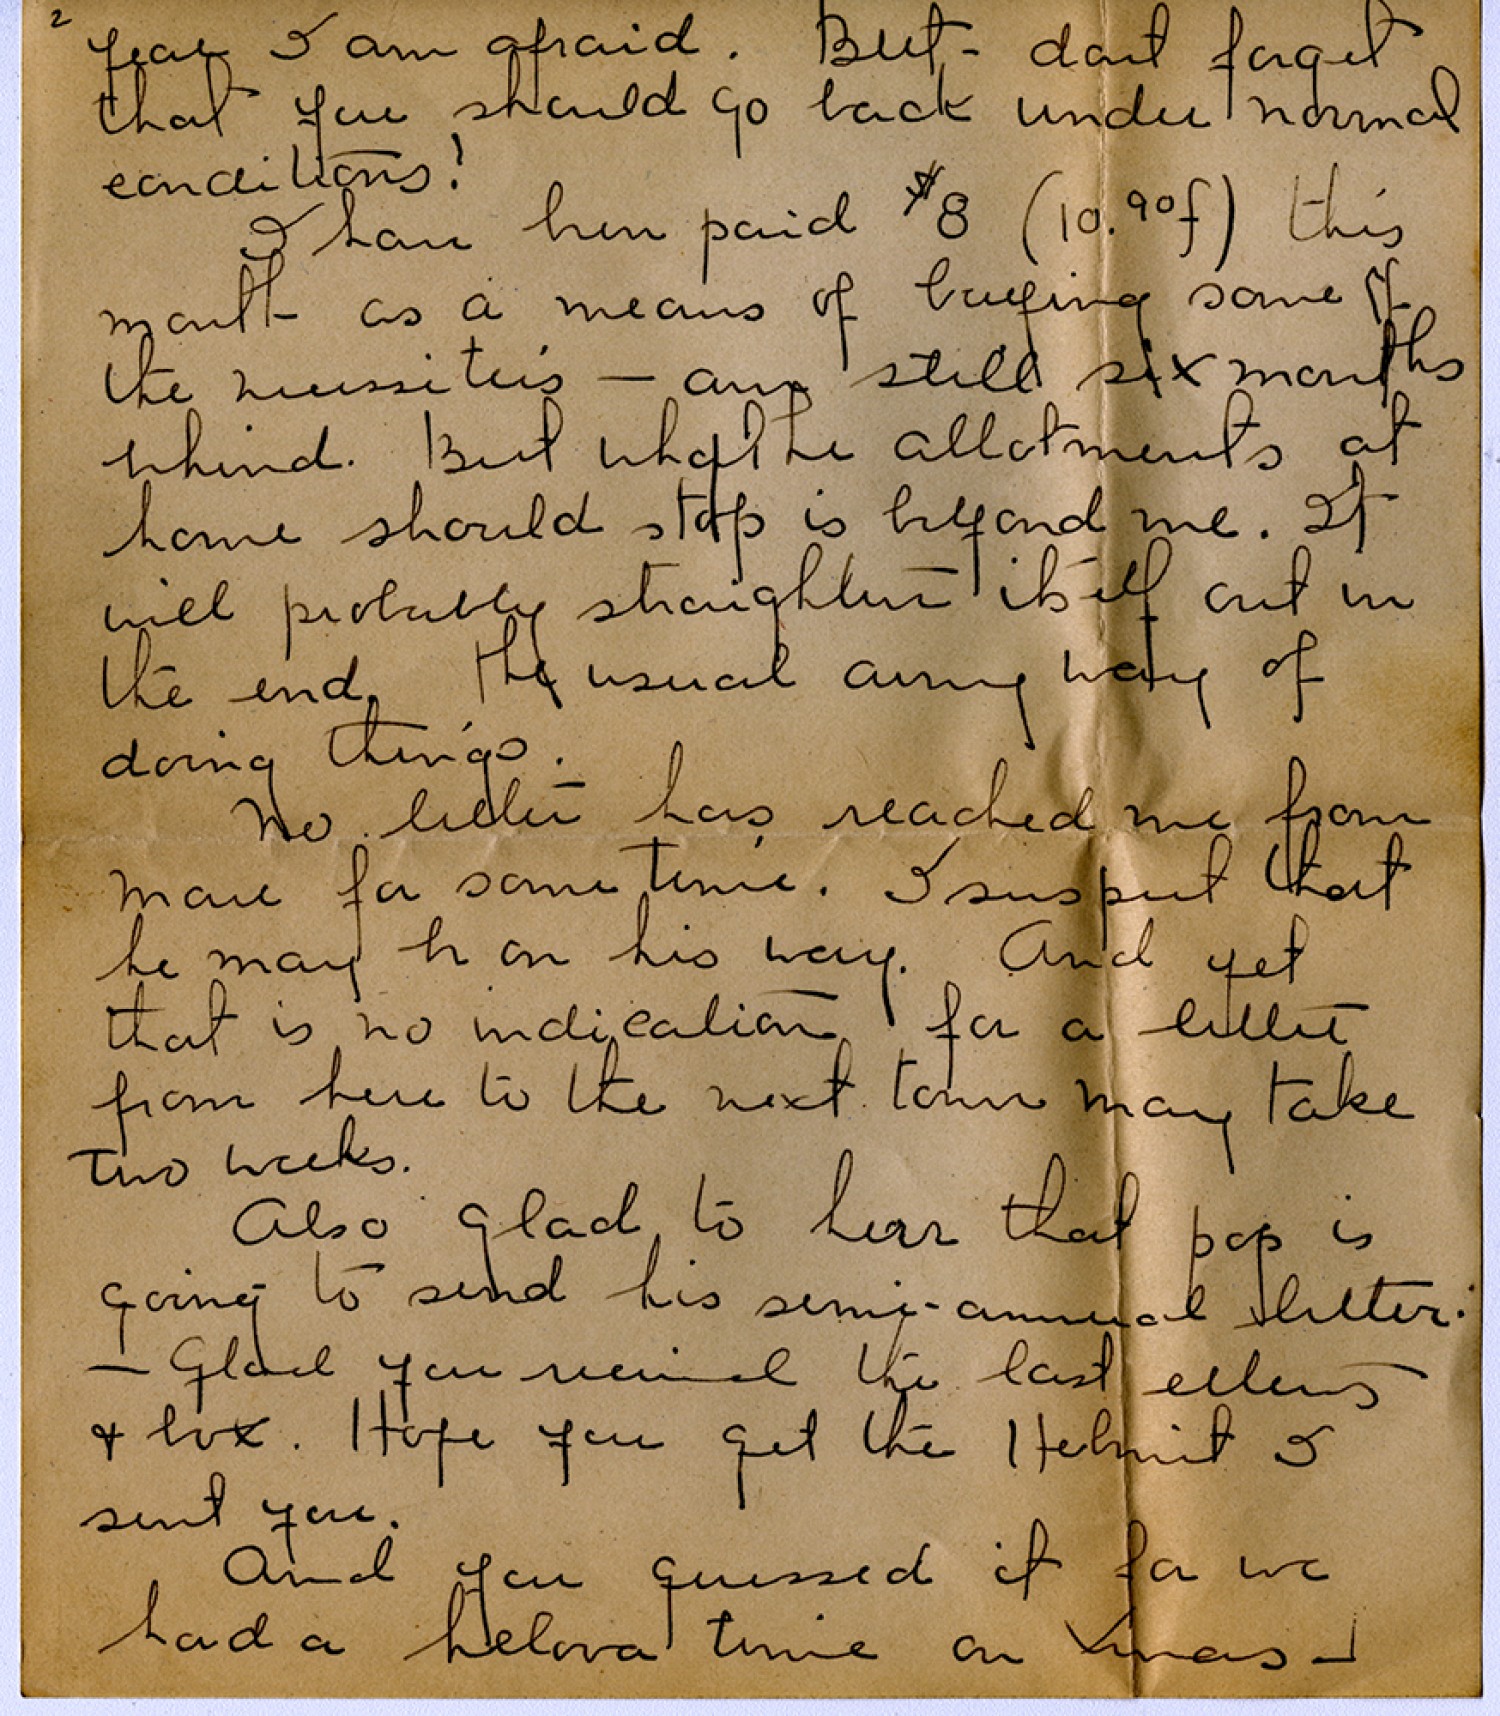 2
year I am afraid. But - dont forget
that you should go back under normal
conditions!
I have been paid $8 (10.90f) this
month as a means of buying some of
the necessities — am still six months
behind. But why the allotments at
home should stop is beyond me. It
will probably straighten itself out in
the end, the usual army way of
doing things.
No letter has reached me from
for some time. I suspect that
he may be on his way. And yet
that is no indication for a letter
from here to the next town may take
two weeks.
Also glad to hear that pop is
going to send his semi-annual letter.
— Glad you received the last
& box. Hope you get the Helmit I
sent you.
And you guessed it for we
had a helova time on Xmas -